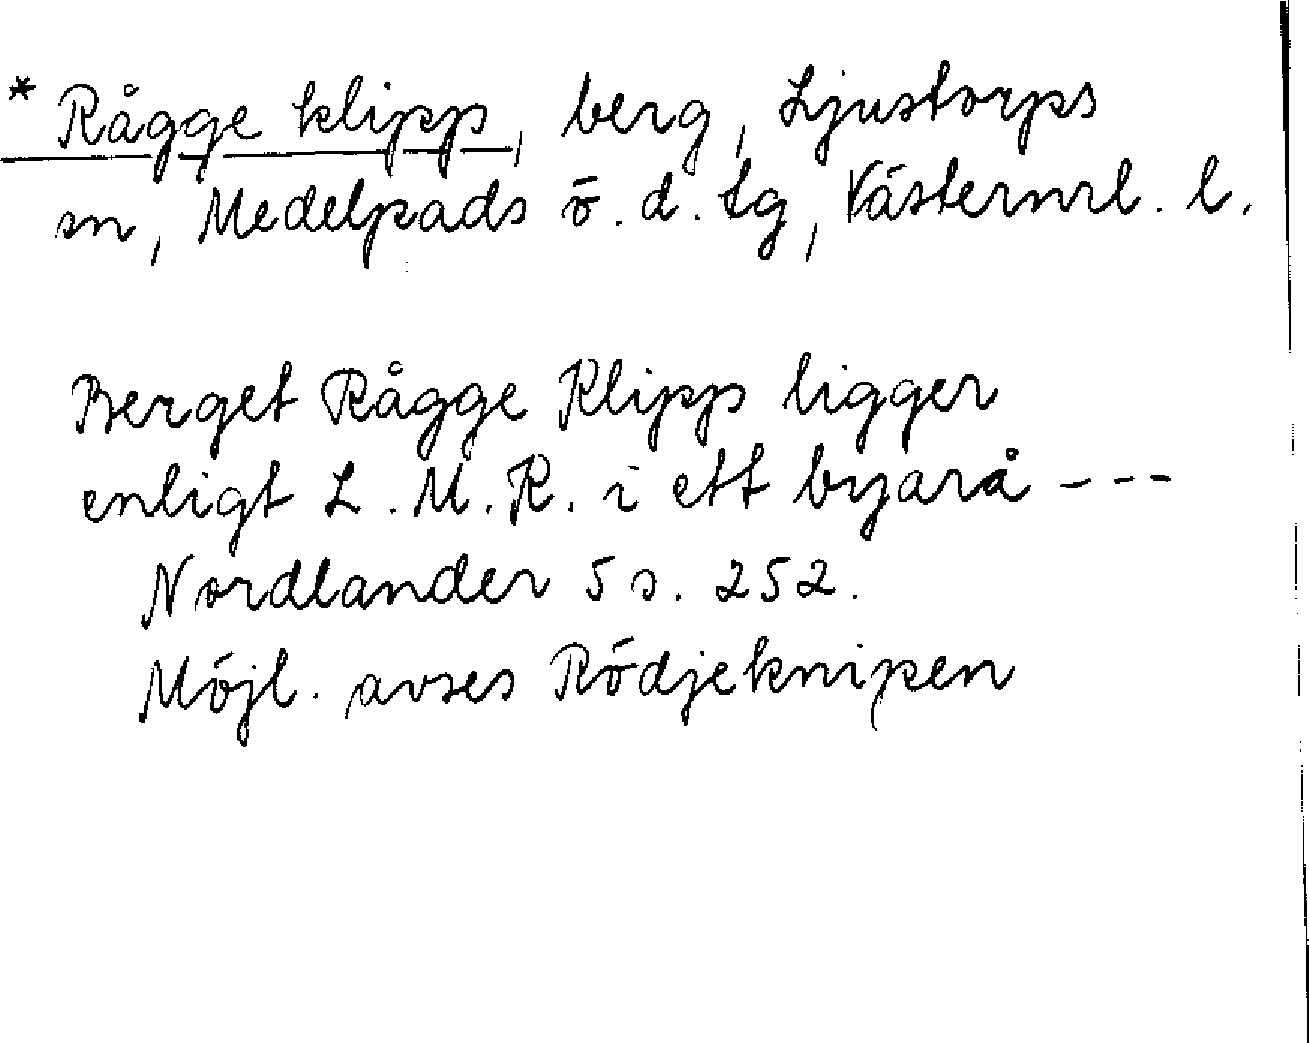 * Rågge klipp, berg, Ljustorps
sn, Medelpads ö. d. tg, Västernrl. l.
Berget Rågge Klipp ligger
enligt L. M. K. i ett byarå ---
Nordlander 5 s. 252.
Möjl. avses Rödjeknipen